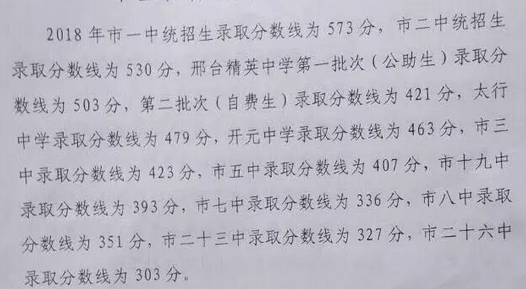 2018 年市一中统招生录取分数线为 573 分，市二中统招生
录取分数线为 530 分，邢台精英中学第一批次（公助生）录取分
数线为 503 分，第二批次（自费生）录取分数线为 421 分，太行
中学录取分数线为 479 分，开元中学录取分数线为 463 分，市三
中录取分数线为 423 分，市五中录取分数线为 407 分，市十九中
录取分数线为 393 分，市七中录取分数线为 336 分，市八中录取
分数线为 351 分，市二十三中录取分数线为 327 分，市二十六中
录取分数线为 303 分。